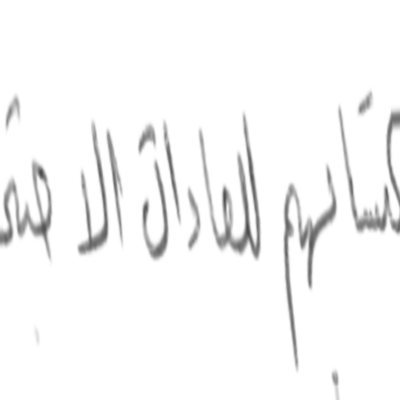 كتسابهم للعادات الا جتم